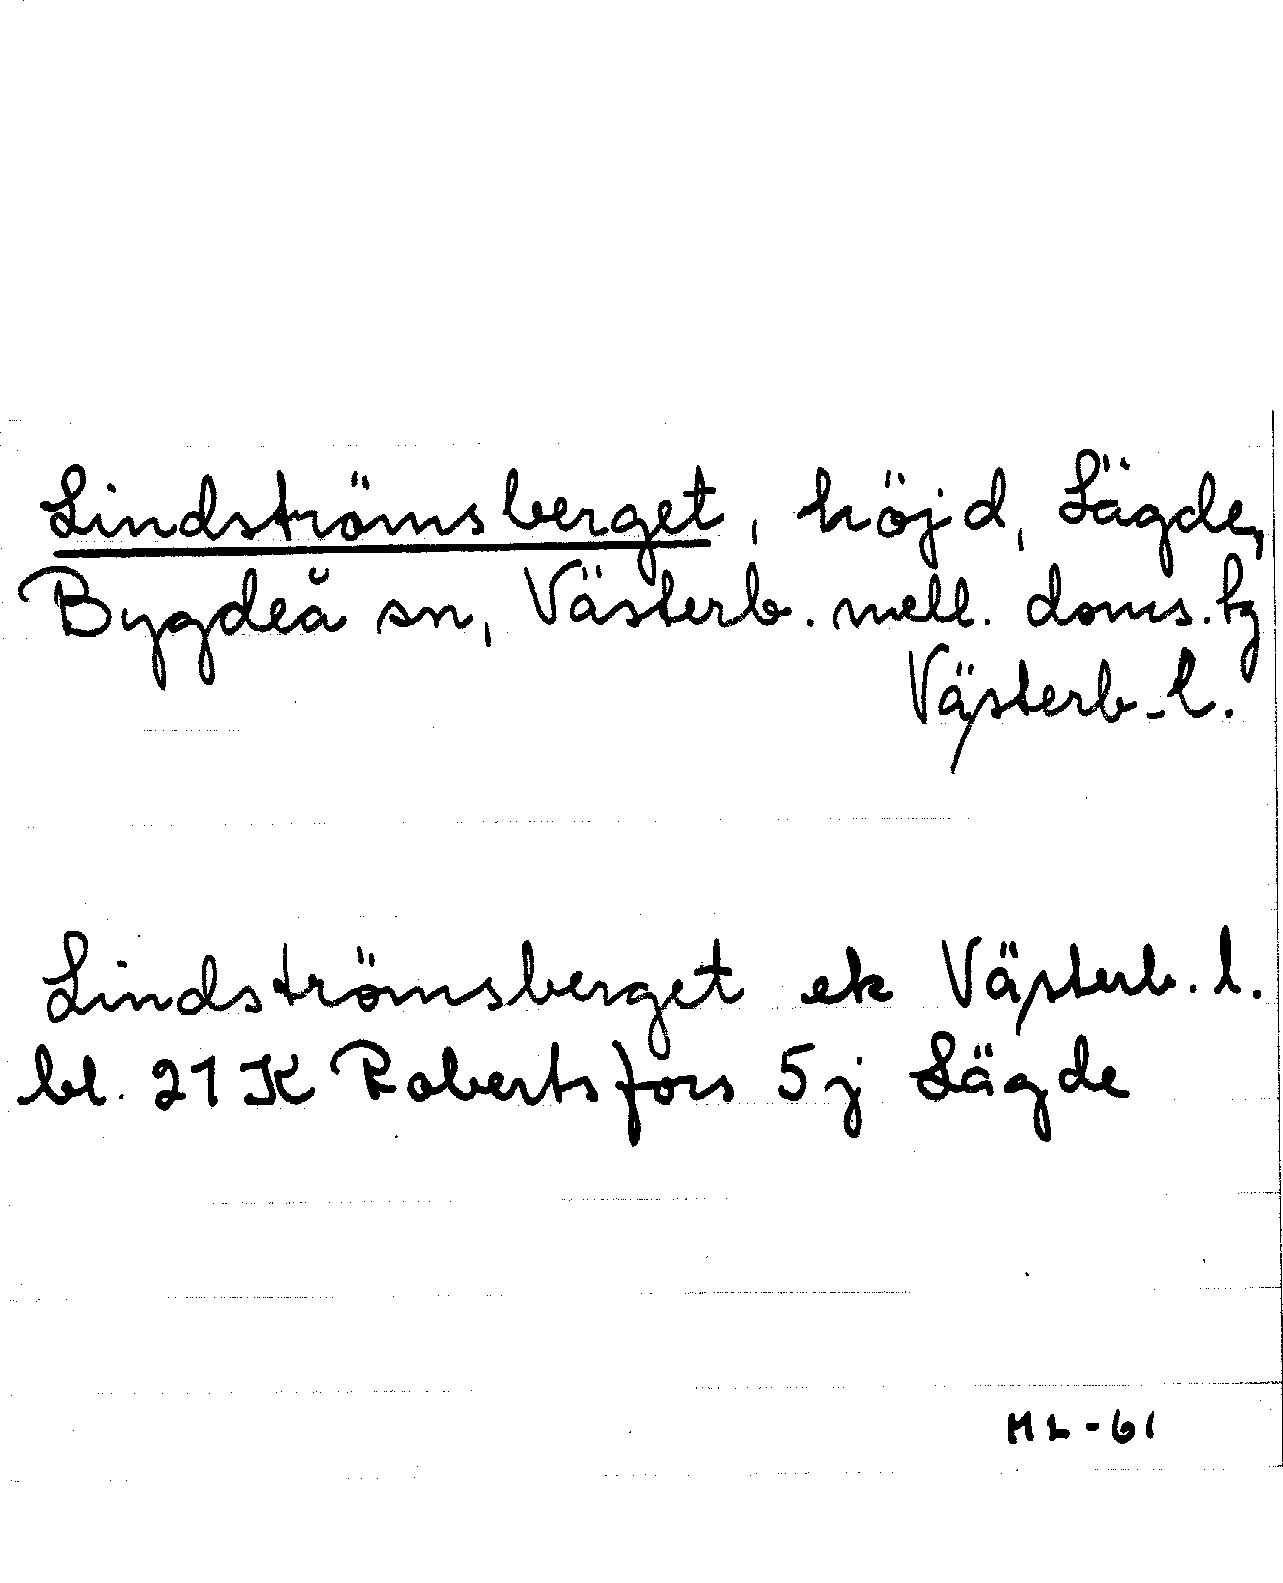 Lindströmsberget, höjd, Lägde,
Bygdeå sn, Västerb. mell. doms. tg
Västerb-l.
Lindströmsberget ek Västerb. l.
bl. 21 K Robertsfors 5 j Lägde
ML-61